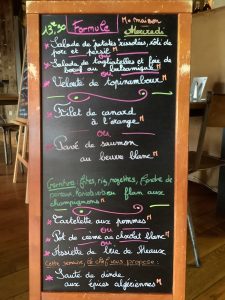 13,€50 Formule
M = maison
Mercredi
* Salade de patates rissolées, rôti de
porc et persil M
ou
* Salade de tagliatelles et foie de
bœuf au balsamique M
ou
* Velouté de topinambour M
* Filet de canard
à l'orange M
ou
* Pavé de saumon
au beurre blanc M
Garniture frites, riz, flan aux
champignons M
* Tartelette aux pommes M
ou
* Pot de crème au chocolat blanc M
ou
* Assiette de brie de Meaux
Cette semaine, le chef vous propose :
* Sauté de dinde
aux épices algériennes M